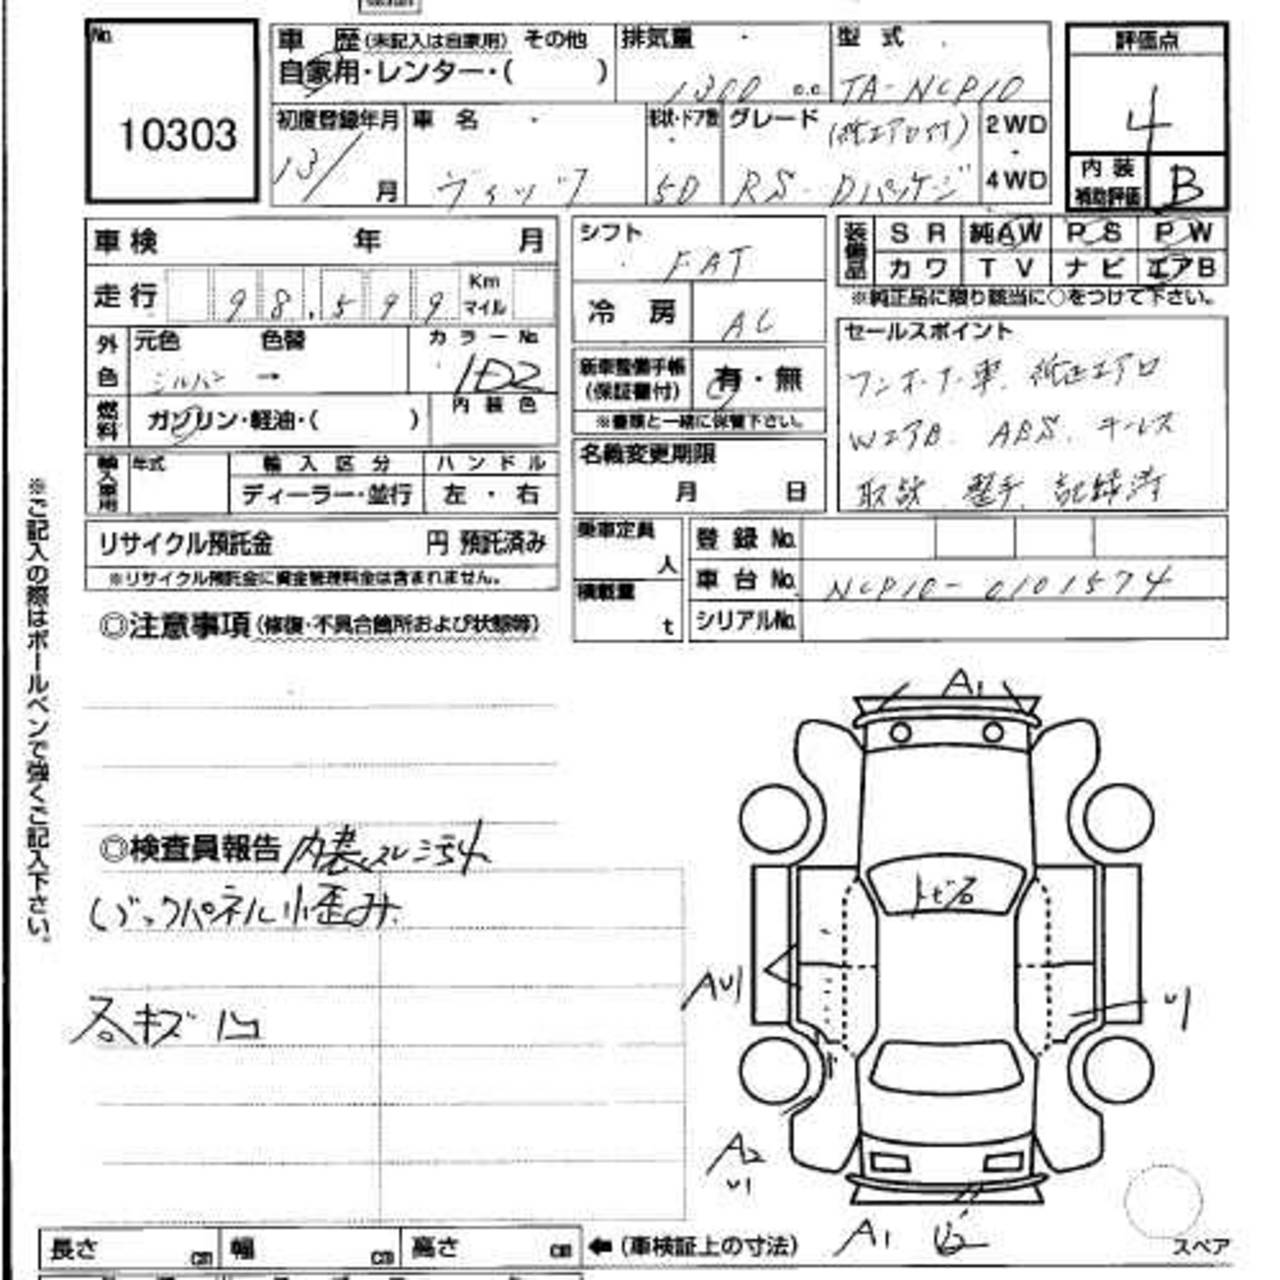 No.
10303
車歴(未記入は自家用) その他
自家用・レンター・( )
排気量
1300 c.c
型式
TA-NCP10
評価点
4
初度登録年月
13/ 月
車名
ヴィッツ
形状・ドア数
5D
グレード
(純エアロ付)
RS-Dパッケージ
2WD
4WD
内装
補助評価
B
車検 年 月
走行
98,599
Km
マイル
外色
元色 色替
シルバー →
カラーNo.
1D2
燃料
ガソリン・軽油・( )
内装色
輸入車用
年式
輸入区分
ディーラー・並行
ハンドル
左・右
シフト
FAT
冷房
AC
新車整備手帳
(保証書付)
有・無
※書類と一緒に保管下さい。
名義変更期限
月 日
装備品
SR 純AW PS PW
カワ TV ナビ エアB
※純正品に限り該当に○をつけて下さい。
セールスポイント
ワンオーナー車、純正エアロ
WエアB、ABS、キーレス
取説、整手、記録済
リサイクル預託金 円 預託済み
※リサイクル預託金に資金管理料金は含まれません。
乗車定員
人
積載量
t
登録No.
車台No. NCP10-0101574
シリアルNo.
◎注意事項(修復・不具合箇所および状態等)
◎検査員報告 内装スレ汚れ
バックパネル小歪み
各キズ凹
※ご記入の際はボールペンで強くご記入下さい。
A1
トビ石
AU1
U1
A2
U1
A1
スペア
長さ cm 幅 cm 高さ cm ←(車検証上の寸法)